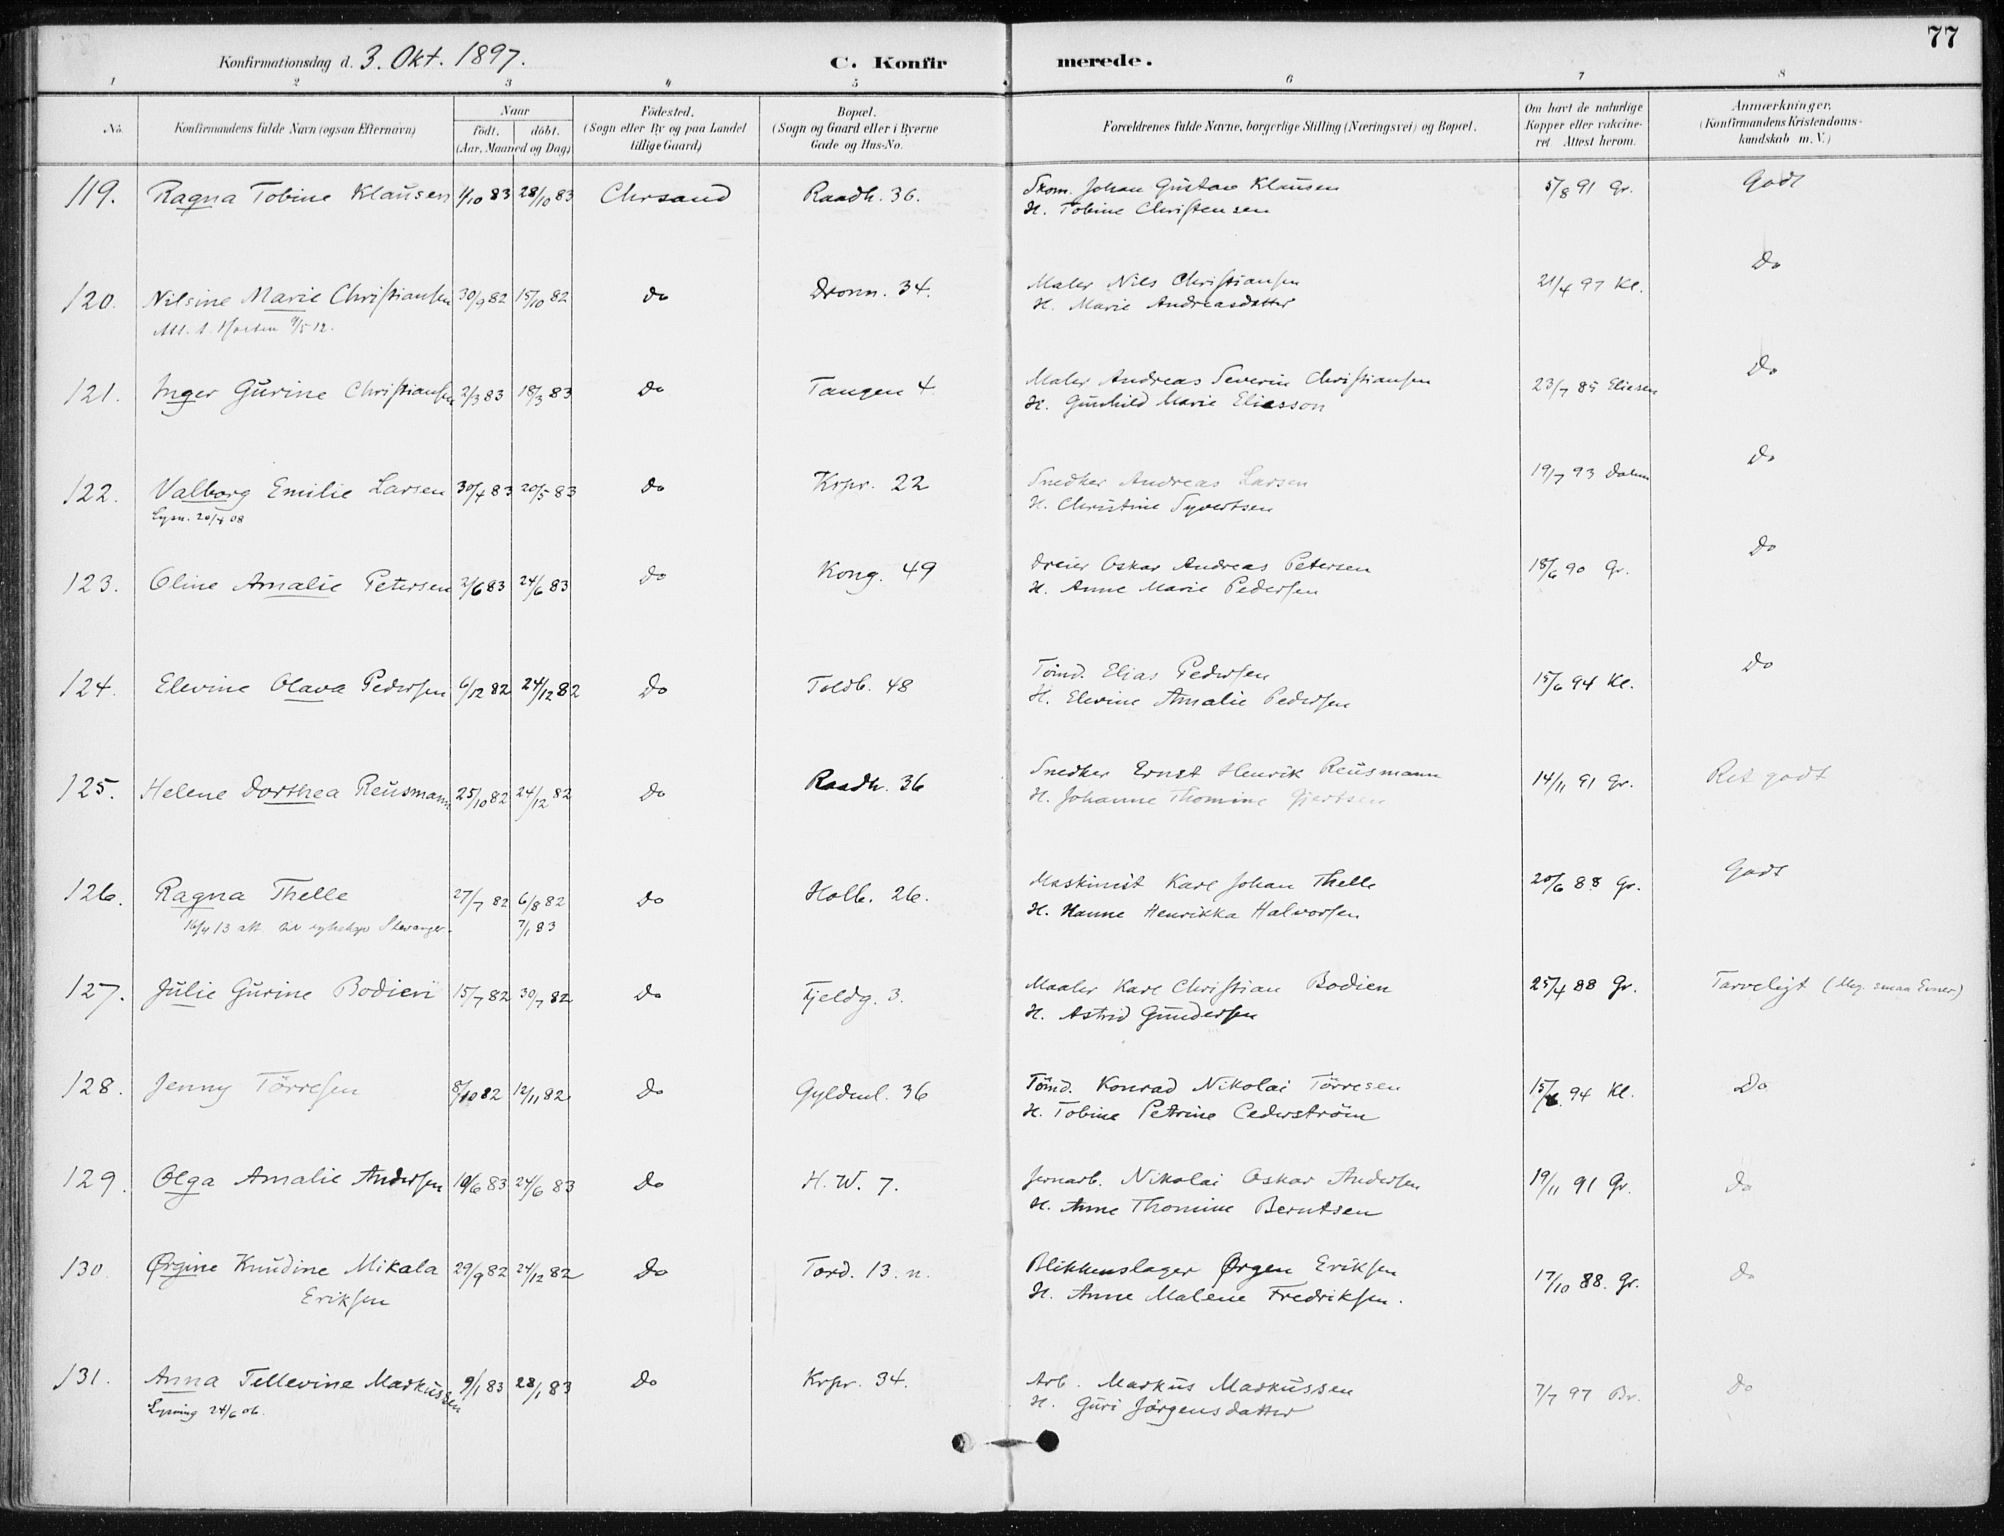 77
Konfirmationsdag d. 3. Okt. 1897.
C. Konfirmerede.
1 2 3 4 5 6 7 8
No.
Konfirmandens fulde Navn (ogsaa Efternavn)
Naar
födt. döbt.
(Aar, Maaned og Dag)
Födested.
(Sogn eller By og paa Landet
tillige Gaard)
Bopæl.
(Sogn og Gaard eller i Byerne
Gade og Hus-No.
Forældrenes fulde Navne, borgerlige Stilling (Næringsvei) og Bopæl.
Om havt de naturlige
Kopper eller vakcine-
ret. Attest herom.
Anmærkninger.
(Konfirmandens Kristendoms-
kundskab m. V.)
119. Ragna Tobine Klausen 1/10 83 28/10 83 Chrsand Raadh. 36. Skom. Johan Gustav Klausen 5/8 91 Gr. Godt
H. Tobine Christensen
120. Nilsine Marie Christiansen 30/9 82 15/10 82 do Dronn. 34. Maler Nils Christiansen 21/4 97 Kl. Do
H. Marie Andreasdatter
Att. t. Horten 9/5 12.
121. Inger Gurine Christiansen 2/3 83 18/3 83 Do Tangen 4. Maler Andreas Severin Christiansen 23/7 85 Eliesen Do
H. Gunhild Marie Eliasson
122. Valborg Emilie Larsen 30/4 83 20/5 83 Do Krpr. 22 Snedker Andreas Larsen 19/7 93 Do
H. Christine Syvertsen
Lysn. 20/4 08
123. Oline Amalie Petersen 2/6 83 24/6 83 Do Kong. 49 Dreier Oskar Andreas Petersen 18/6 90 Gr. Do
H. Anne Marie Pedersen
124. Elevine Olava Pedersen 6/12 82 24/12 82 Do Toldb. 48 Tömd. Elias Pedersen 15/6 94 Kl. Do
H. Elevine Amalie Pedersen
125. Helene Dorthea Reusmann 25/10 82 24/12 82 Do Raadh. 36 Snedker Ernst Henrik Reusmann 14/11 91 Gr. Ret godt
H. Johanne Thomine Gjertsen
126. Ragna Thelle 27/7 82 6/8 82 Do Holb. 26. Maskinist Karl Johan Thelle 20/6 88 Gr. Godt
H. Hanne Henrikka Halvorsen
16/4 13 att. Stavanger. 7/1 83
127. Julie Gurine Bodien 15/7 82 30/7 82 Do Fjeldg. 3. Maaler Karl Christian Bodien 25/4 88 Gr. Tarveligt (Meg. smaa Evner)
H. Astrid Gundersen
128. Jenny Törresen 8/10 82 12/11 82 Do Gyldenl. 36 Tömd. Konrad Nikolai Törresen 15/6. 94 Kl. Do
H. Tobine Petrine Cederström
129. Olga Amalie Andersen 10/6 83 24/6 83 Do H. W. 7. Jernarb. Nikolai Oskar Andersen 19/11 91 Gr. Do
H. Anne Thomine Berntsen
130. Ørgine Knudine Mikala 29/9 82 24/12 82 Do Tord. 13. n. Blikkenslager Ørgen Eriksen 17/10 88. Gr. Do
Eriksen H. Anne Malene Fredriksen.
131. Anna Tellevine Markussen 9/1 83 28/1 83 Do Krpr. 34. Arb. Markus Markussen 7/7 97 Br. Do
H. Guri Jörgensdatter
Lysning 24/6 06.